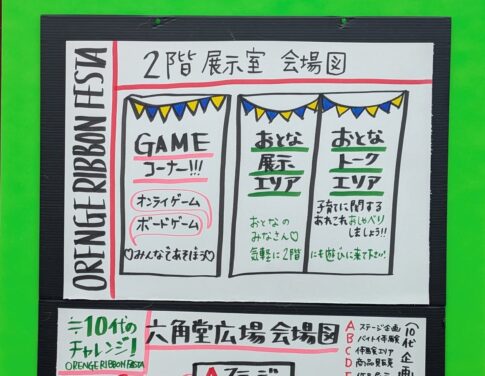 ORENGE RIBBON FESTA
2階 展示室 会場図
GAME
コーナー!!!
オンラインゲーム
ボードゲーム
♡みんなであそぼう♡
おとな
展示
エリア
おとなの
みなさん♡
気軽に2階
おとな
トーク
エリア
子育てに関する
あれこれおしゃべり
しましょう!!
にも遊びに来て下さい!
≒10代の
チャレンジ!
ORENGE RIBBON FESTA
六角堂広場 会場図
Aステージ
A ステージ企画
B バイトイ体験
C 体験エリア
D
E
(10代企画